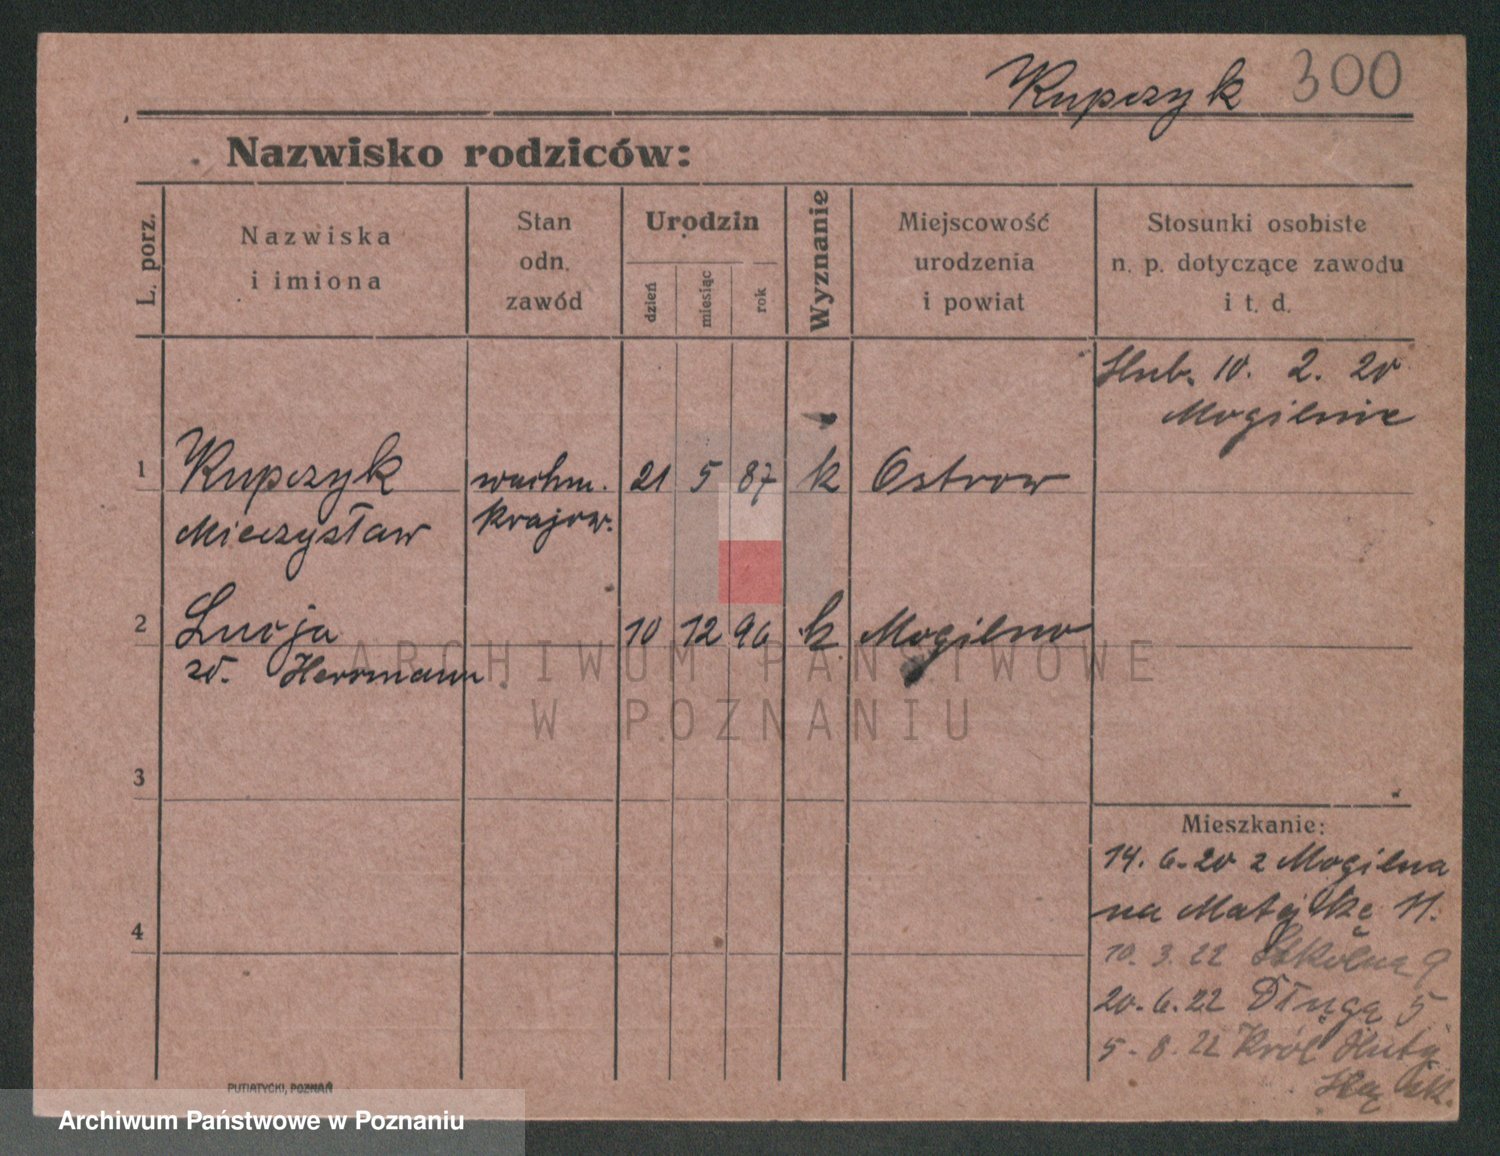 Kupczyk 300
Nazwisko rodziców:
L. porz.
Nazwiska
i imiona
Stan
odn.
zawód
Urodzin
dzień
miesiąc
rok
Wyznanie
Miejscowość
urodzenia
i powiat
Stosunki osobiste
n. p. dotyczące zawodu
i t. d.
Slub. 10. 2. 20
Mogilnie
1 Kupczyk wachm. 21 5 87 k Ostrow
Mieczysław krajow.
2 Lucja 10 12 96 k Mogilno
zd. Herrmann
ARCHIWUM PAŃSTWOWE
W POZNANIU
3
Mieszkanie:
14. 6. 20 z Mogilna
na Matejkę 11.
4
10. 3. 22 Szkolną 9
20. 6. 22 Długą 5
5. 8. 22 Król Hutę
PUTIATYCKI, POZNAŃ
Archiwum Państwowe w Poznaniu